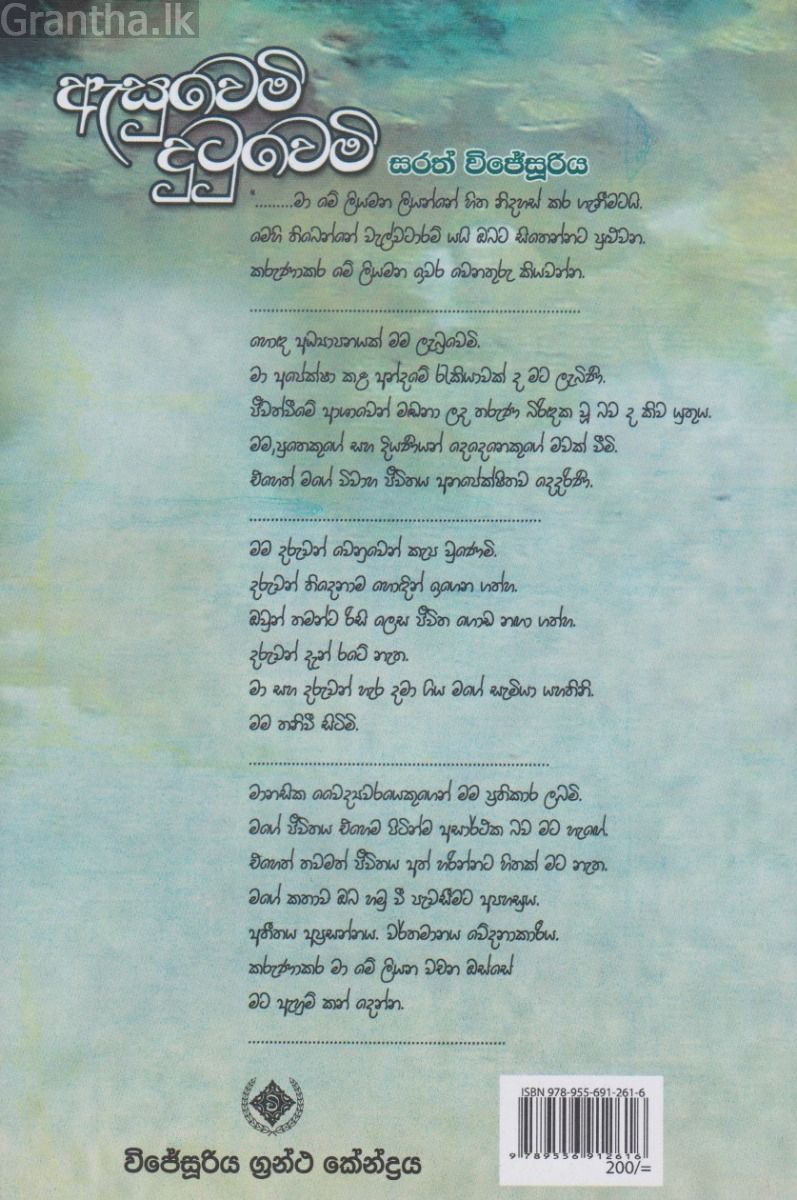 Grantha.lk
ඇසුවෙමි
දුටුවෙමි
සරත් විජේසූරිය
".........මා මේ ලියමන ලියන්නේ හිත නිදහස් කර ගැනීමටයි.
මෙහි තිබෙන්නේ වැල්වටාරම් යයි ඔබට සිතෙන්නට පුළුවන.
කරුණාකර මේ ලියමන ඉවර වෙනතුරු කියවන්න.
හොඳ අධ්‍යාපනයක් මම ලැබුවෙමි.
මා අපේක්ෂා කළ අන්දමේ රැකියාවක් ද මට ලැබිණි.
ජීවත්වීමේ ආශාවෙන් මඬනා ලද තරුණ බිරිඳක වූ බව ද කිව යුතුය.
මම,පුතෙකුගේ සහ දියණියන් දෙදෙනෙකුගේ මවක් වීමි.
එහෙත් මගේ විවාහ ජීවිතය අනපේක්ෂිතව දෙදරිණි.
මම දරුවන් වෙනුවෙන් කැප වුණෙමි.
දරුවන් තිදෙනාම හොඳින් ඉගෙන ගත්හ.
ඔවුන් තමන්ට රිසි ලෙස ජීවිත ගොඩ නඟා ගත්හ.
දරුවන් දැන් රටේ නැත.
මා සහ දරුවන් හැර දමා ගිය මගේ සැමියා යහතිනි.
මම තනිවී සිටිමි.
මානසික වෛද්‍යවරයෙකුගෙන් මම ප්‍රතිකාර ලබමි.
මගේ ජීවිතය එහෙම පිටින්ම අසාර්ථක බව මට හැඟේ.
එහෙත් තවමත් ජීවිතය අත් හරින්නට හිතක් මට නැත.
මගේ කතාව ඔබ හමු වී පැවසීමට අපහසුය.
අතීතය අප්‍රසන්නය. වර්තමානය වේදනාකාරීය.
කරුණාකර මා මේ ලියන වචන ඔස්සේ
මට ඇහුම් කන් දෙන්න.
වි
විජේසූරිය ග්‍රන්ථ කේන්ද්‍රය
ISBN 978-955-691-261-6
9 789556 912616
200/=